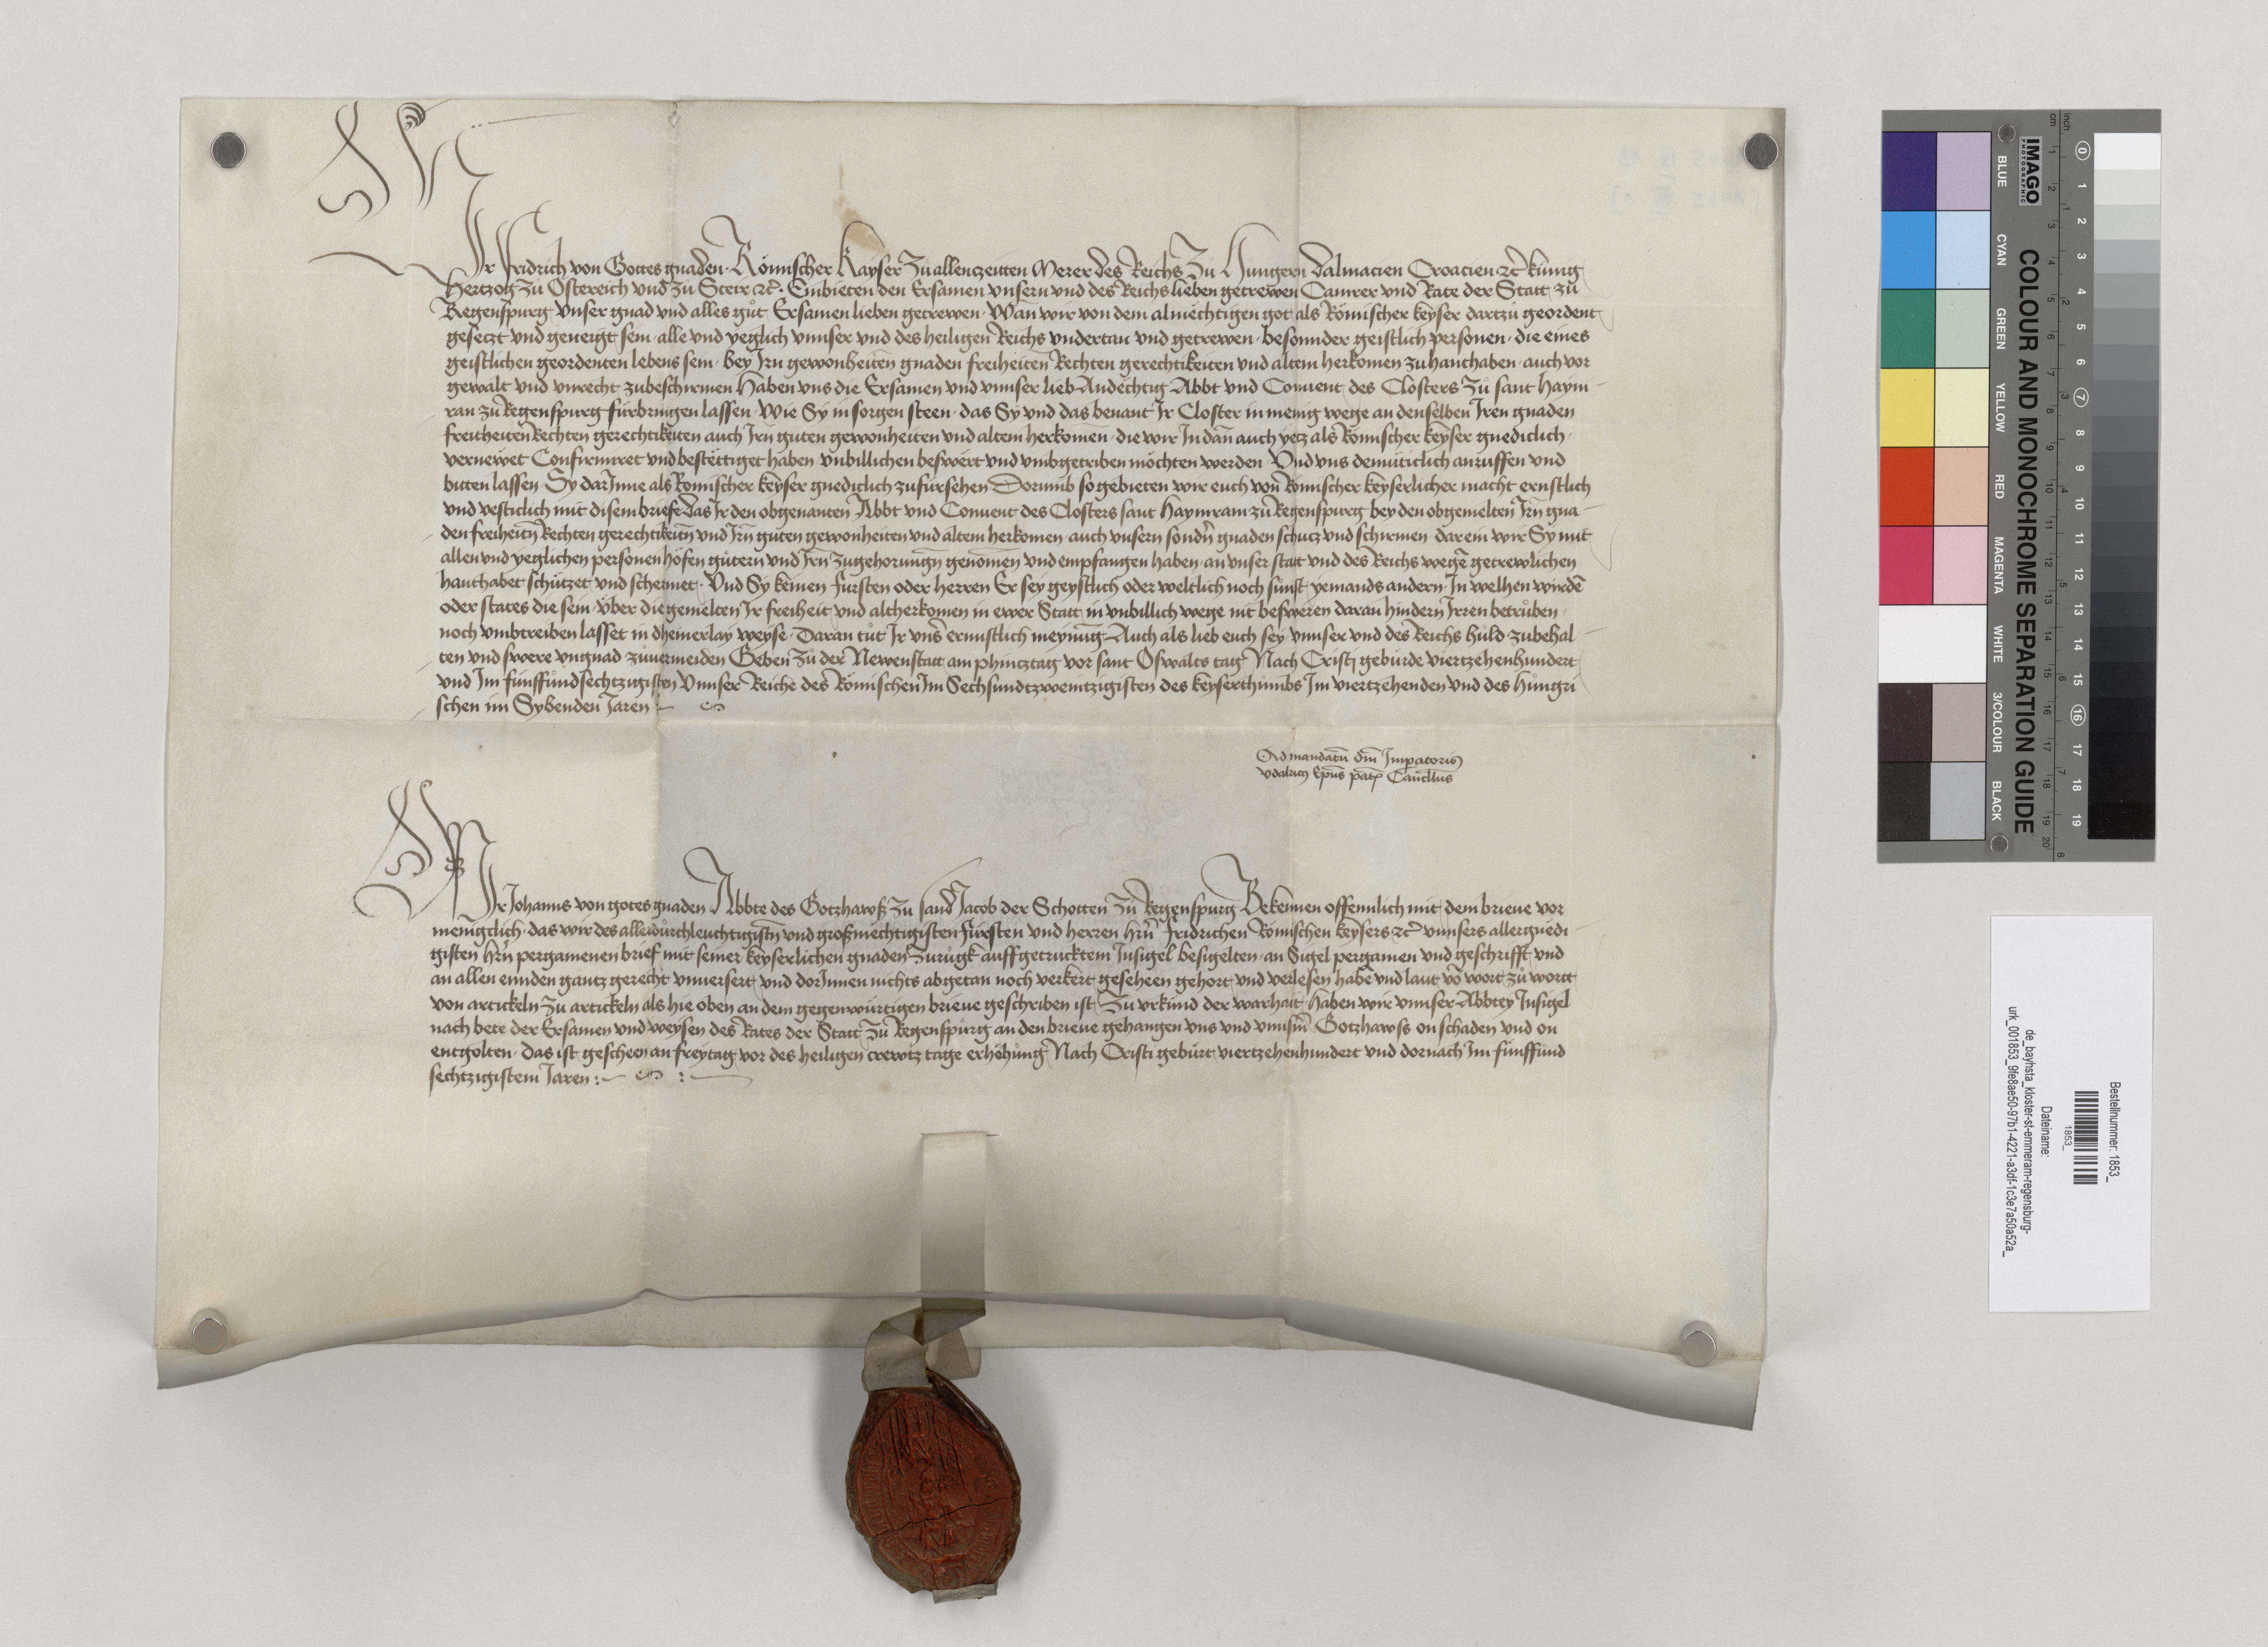 Wir Fridrich von Gottes gnaden Römischer Kayser Zu allenczeitten Merer des Reichs Zu Hungern Dalmacien Croacien ꝛc̄ kunig
Hertzog zu Östereich vnd zu Steir ꝛc̄. Embieten den Ersamen vnsern vnd des Reichs lieben getrewen Camrer vnd Rate der Statt zů
Regenspurg vnser gnad vnd alles gůt Ersamen lieben getrewen Wan wir von dem almechtigen got als Römischer keyser dartzu geordent
gesetzt vnd geneigt sein alle vnd yeglich vnnser vnd des heiligen Reichs vndertan vnd getrewen besonnder geistlich personen die eines
geistlichen geordenten lebens sein bey Irn gewonheiten gnaden freiheiten Rechten gerechtikeiten vnd altem herkomen zuhanthaben auch vor
gewalt vnd vnrecht zubeschirmen Haben vns die Ersamen vnd vnnser lieb Andechtig Abbt vnd Conuent des Closters Zů sant Haym-
ran zů Regenspurg furbringen lassen Wie Sy in sorgen steen das Sy vnd das benant Ir Closter in menig wege an denselben Iren gnaden
freiheiten Rechten gerechtikeiten auch Irn guten gewonheiten vnd altem herkomen die wir In dan̄ auch yetz als Römischer keyser gnediclich
vernewet Confirmiret vnd bestettiget haben vnbillichen beswert vnd vmbgetriben möchten werden Vnd vns demuticlich anruffen vnd
biten lassen Sy darInne als Romischer keyser gnediclich zufursehen Dorumb so gebieten wir euch von Romischer keyserlicher macht ernstlich
vnd vesticlich mit disem briefe das Ir den obgenanten Abbt vnd Conuent des Closters sant Haymram zů Regenspurg bey den obgemelten Irn gna-
den freiheitn̄ Rechten gerechtikeitn̄ vnd Irn guten gewonheiten vnd altem herkomen auch vnsern sondn̄ gnaden schutz vnd schirmen darein wir Sy mit
allen vnd yeglichen personen höfen gůtern vnd Irn zugehorungn̄ genōmen vnd empfangen haben an vnser statt vnd des Reichs wegē getrewlichen
hanthabet schůtzet vnd schermet. Vnd Sy keinen fursten oder herren Er sey geystlich oder weltlich noch sunst yemands andern In welhen wirdē
oder states die sein vber die gemelten Ir freiheit vnd altherkomen in ewer Statt in vnbillich wege nit besweren daran hindern Irren betrůben
noch vmbtreiben lasset in dheinerlay weyse Daran tůt Ir vns̄ ernnstlich meynūg Auch als lieb euch sey vnnser vnd des Reichs huld zubehal
ten vnd swere vngnad zůuermeiden Geben zů der Newenstatt am phincztag vor sant Oswalts tag Nach Cristi geburde viertzehenhundert
vnd Im funffundsechtzigisten Vnnser Reiche des Römischen Im Sechsundtzweintzigisten des keyserthumbs Im viertzehenden vnd des hungri
schen im Sybenden Jaren
Ad mandatū dn̄i Imperatoris
vdalricus Ep̄us patau̅ Cancellarius
Wir Johanns von gotes gnaden Abbte des Gotzhawß zu sand Jacob der Schotten zů Regenspurg Bekennen offennlich mit dem brieue vor
menigclich das wir des allerdurchleuchtigistn̄ vnd großmechtigisten fursten vnd herren hrn̄ Fridrichen Römischen keysers ꝛc̄ vnnsers allergnedi-
gisten hrn̄ pergamenen brief mit seiner keyserlichen gnaden zurugk auffgetrucktem Insigel besigelten an Sigel pergamen vnd geschrifft vnd
an allen ennden gantz gerecht vnuersert vnd dorInnen nichts abgetan noch verkert gesehen gehort vnd verlesen habē vnd laut vō wort zů wortt
von artickeln zu artickeln als hie oben an dem gegenwurtigen brieue geschriben ist Zu vrkund der warhait haben wir vnnser Abbtey Insigel
nach bete der Ersamen vnd weysen des Rates der Statt zů Regenspůrg an den brieue gehangen vns vnd vnnsm̄ Gotzhawss on schaden vnd on
entgolten das ist gescheen an freytag vor des heiligen crewtz tage erhöhung Nach Cristi geburt viertzehenhundert vnd dornach Im funffund
sechtzigistem Jaren
IMAGO
PHOTOGRAPHIC
COLOUR AND MONOCHROME SEPARATION GUIDE
BLUE CYAN GREEN YELLOW RED MAGENTA WHITE 3/COLOUR BLACK
cm 1 2 3 4 5 6 7 8 9 10 11 12 13 14 15 16 17 18 19 20
inch 1 2 3 4 5 6 7 8
0 1 2 3 4 5 6 7 8 9 10 11 12 13 14 15 16 17 18 19
Bestellnummer: 1853_
1853_
Dateiname:
de_bayhsta_kloster-st-emmeram-regensburg-
urk_001853_9fe8ae50-97b1-4221-a3df-1c3e7a50a52a_